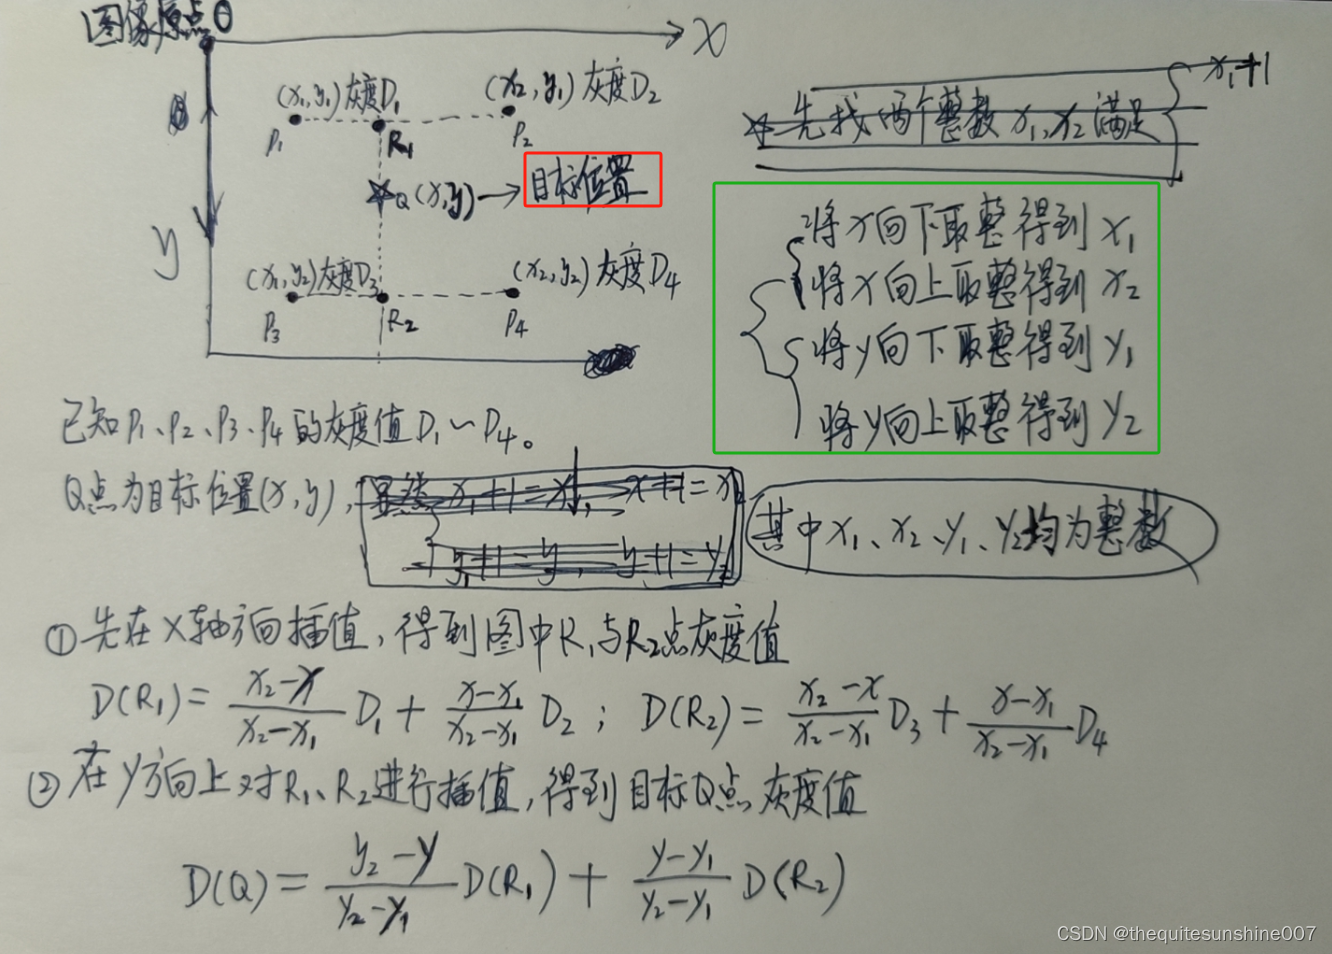 图像原点O
x
y
(x₁,y₁)灰度D₁
(x₂,y₁)灰度D₂
P₁
R₁
P₂
Q(x,y)→目标位置
(x₁,y₂)灰度D₃
(x₂,y₂)灰度D₄
P₃
R₂
P₄
先找两个整数x₁、x₂满足{x₁+1
将x向下取整得到x₁
将x向上取整得到x₂
将y向下取整得到y₁
将y向上取整得到y₂
已知P₁、P₂、P₃、P₄的灰度值D₁~D₄。
Q点为目标位置(x,y),显然x₁+1=x, x+1=x₂
y₁+1=y, y+1=y₂
其中x₁、x₂、y₁、y₂均为整数
①先在x轴方向插值,得到图中R₁与R₂点灰度值
D(R₁)=\frac{x₂-x}{x₂-x₁}D₁+\frac{x-x₁}{x₂-x₁}D₂;D(R₂)=\frac{x₂-x}{x₂-x₁}D₃+\frac{x-x₁}{x₂-x₁}D₄
②在y方向上对R₁、R₂进行插值,得到目标Q点灰度值
D(Q)=\frac{y₂-y}{y₂-y₁}D(R₁)+\frac{y-y₁}{y₂-y₁}D(R₂)
CSDN @thequitesunshine007